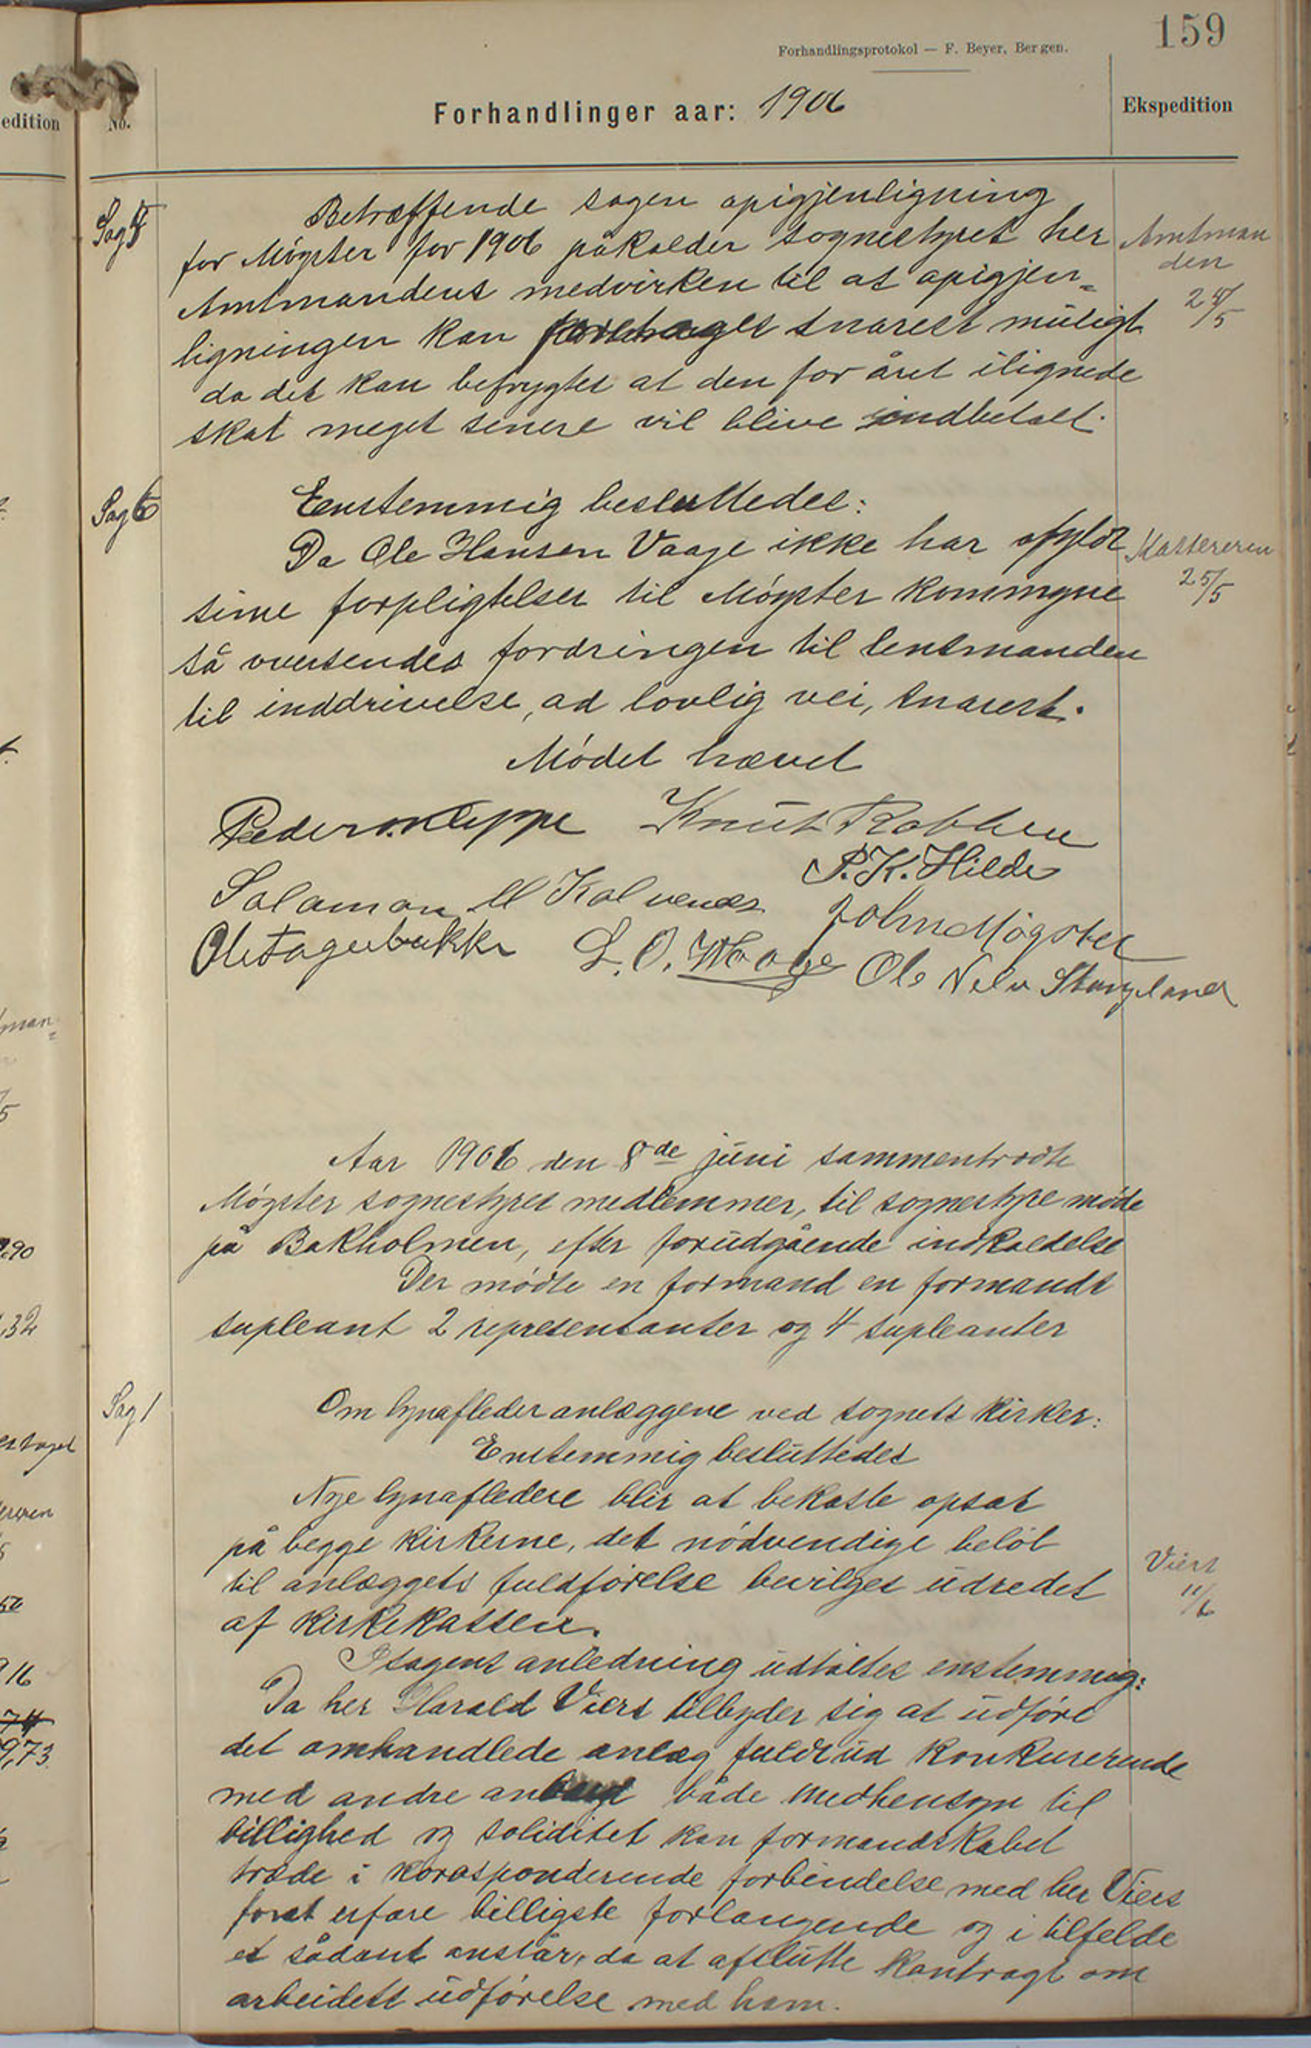 159
Forhandlingsprotokol — F. Beyer, Bergen.
edition
No.
Forhandlinger aar: 1906
Ekspedition
Sag 5
Betræffende sagen opigjenligning
for Møgster for 1906 påkalder sognestyret her
Amtmandens medvirken til at opigjen=
ligningen kan foretages snarest muligt
da det kan befrygtes at den for året ilignede
skat meget senere vil blive indbetalt.
Amtman
den
25/5
Sag 6
Eenstemmig besluttedes:
Da Ole Hansen Vaage ikke har opfyldt
sine forpligtelser til Møgster kommune
så oversendes fordringen til lensmanden
til inddrivelse, ad lovlig vei, snarest.
Kassereren
25/5
Mødet hævet
Peder O. Kleppe Knut Rabben
P. K. Hilde
Salamon M Kalvenes John Møgster
Ole Tagerbakke L. O. Waage Ole Nels Stangeland
Aar 1906 den 8de juni sammentrådte
Møgster sognestyres medlemmer, til sognestyre møde
på Bakholmen, efter forudgående indkaldelse
Der mødte en formand en formands
supleant 2 representanter og 4 supleanter
Sag 1
Om lynafleder anlæggene ved sognets kirker:
Enstemmig besluttedes
Nye lynafledere blir at bekoste opsat
på begge kirkerne, det nødvendige beløb
til anlæggets fuldførelse bevilges udredet
af kirkekassen.
Viers
11/6
I sagens anledning udtaltes enstemmig:
Da her Harald Viers tilbyder sig at udføre
det omhandlede anlæg fuldt ud konkurerende
med andre anbud både medhensyn til
billighed og soliditet kan formandskabet
træde i korasponderende forbindelse med her Viers
forat erfare billigste forlangende og i tilfelde
et sådant anstår, da at afslutte kontragt om
arbeidets udførelse med ham.